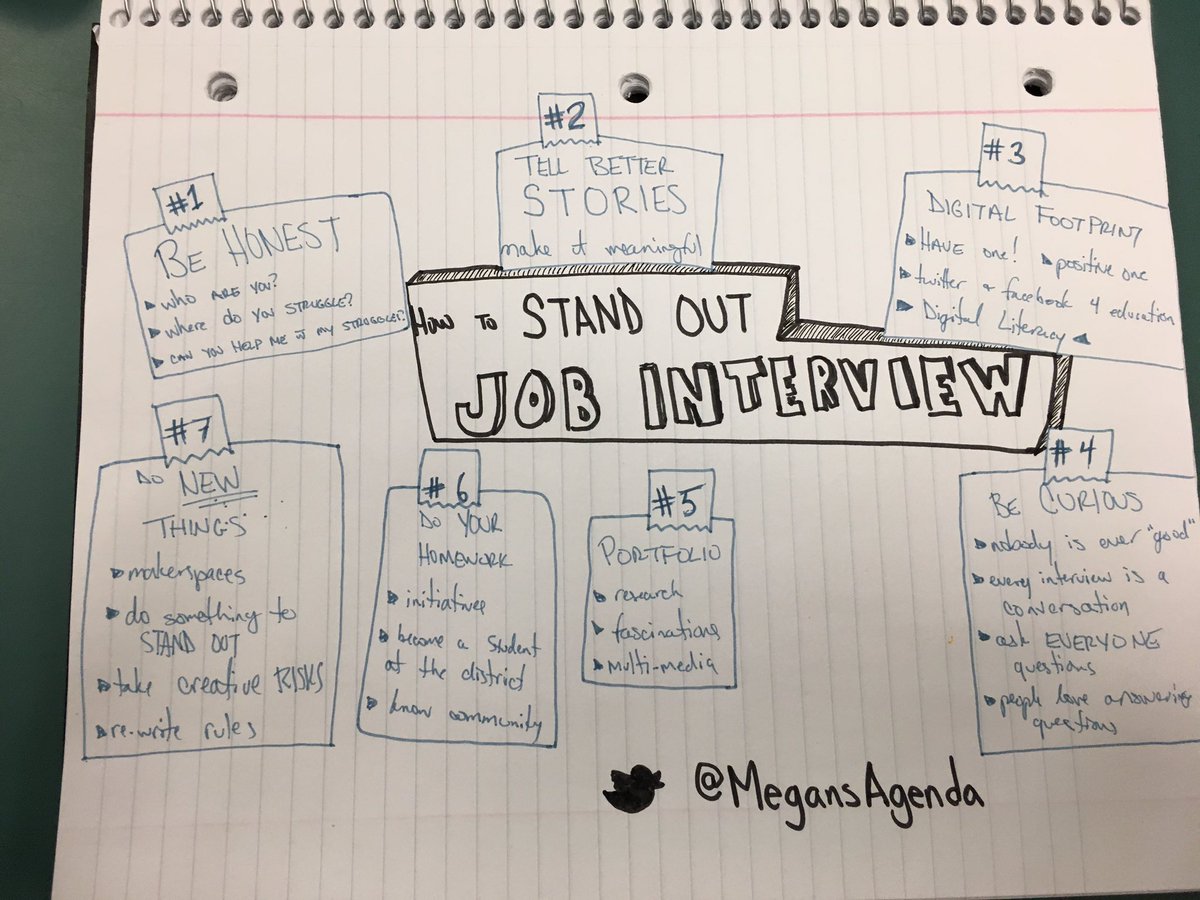 How to STAND OUT
JOB INTERVIEW
#1
BE HONEST
WHO ARE YOU?
WHERE DO YOU STRUGGLE?
CAN YOU HELP ME W MY STRUGGLES?
#2
TELL BETTER
STORIES
make it meaningful
#3
DIGITAL FOOTPRINT
HAVE one!
positive one
twitter & facebook 4 education
Digital Literacy
#4
BE CURIOUS
nobody is ever "good"
every interview is a
conversation
ask EVERYONE
questions
people love answering
questions
#5
PORTFOLIO
research
fascinations
multi-media
#6
DO YOUR
HOMEWORK
initiatives
become a student
at the district
know community
#7
DO NEW
THINGS
makerspaces
do something to
STAND OUT
take creative RISKS
re-write rules
@MegansAgenda